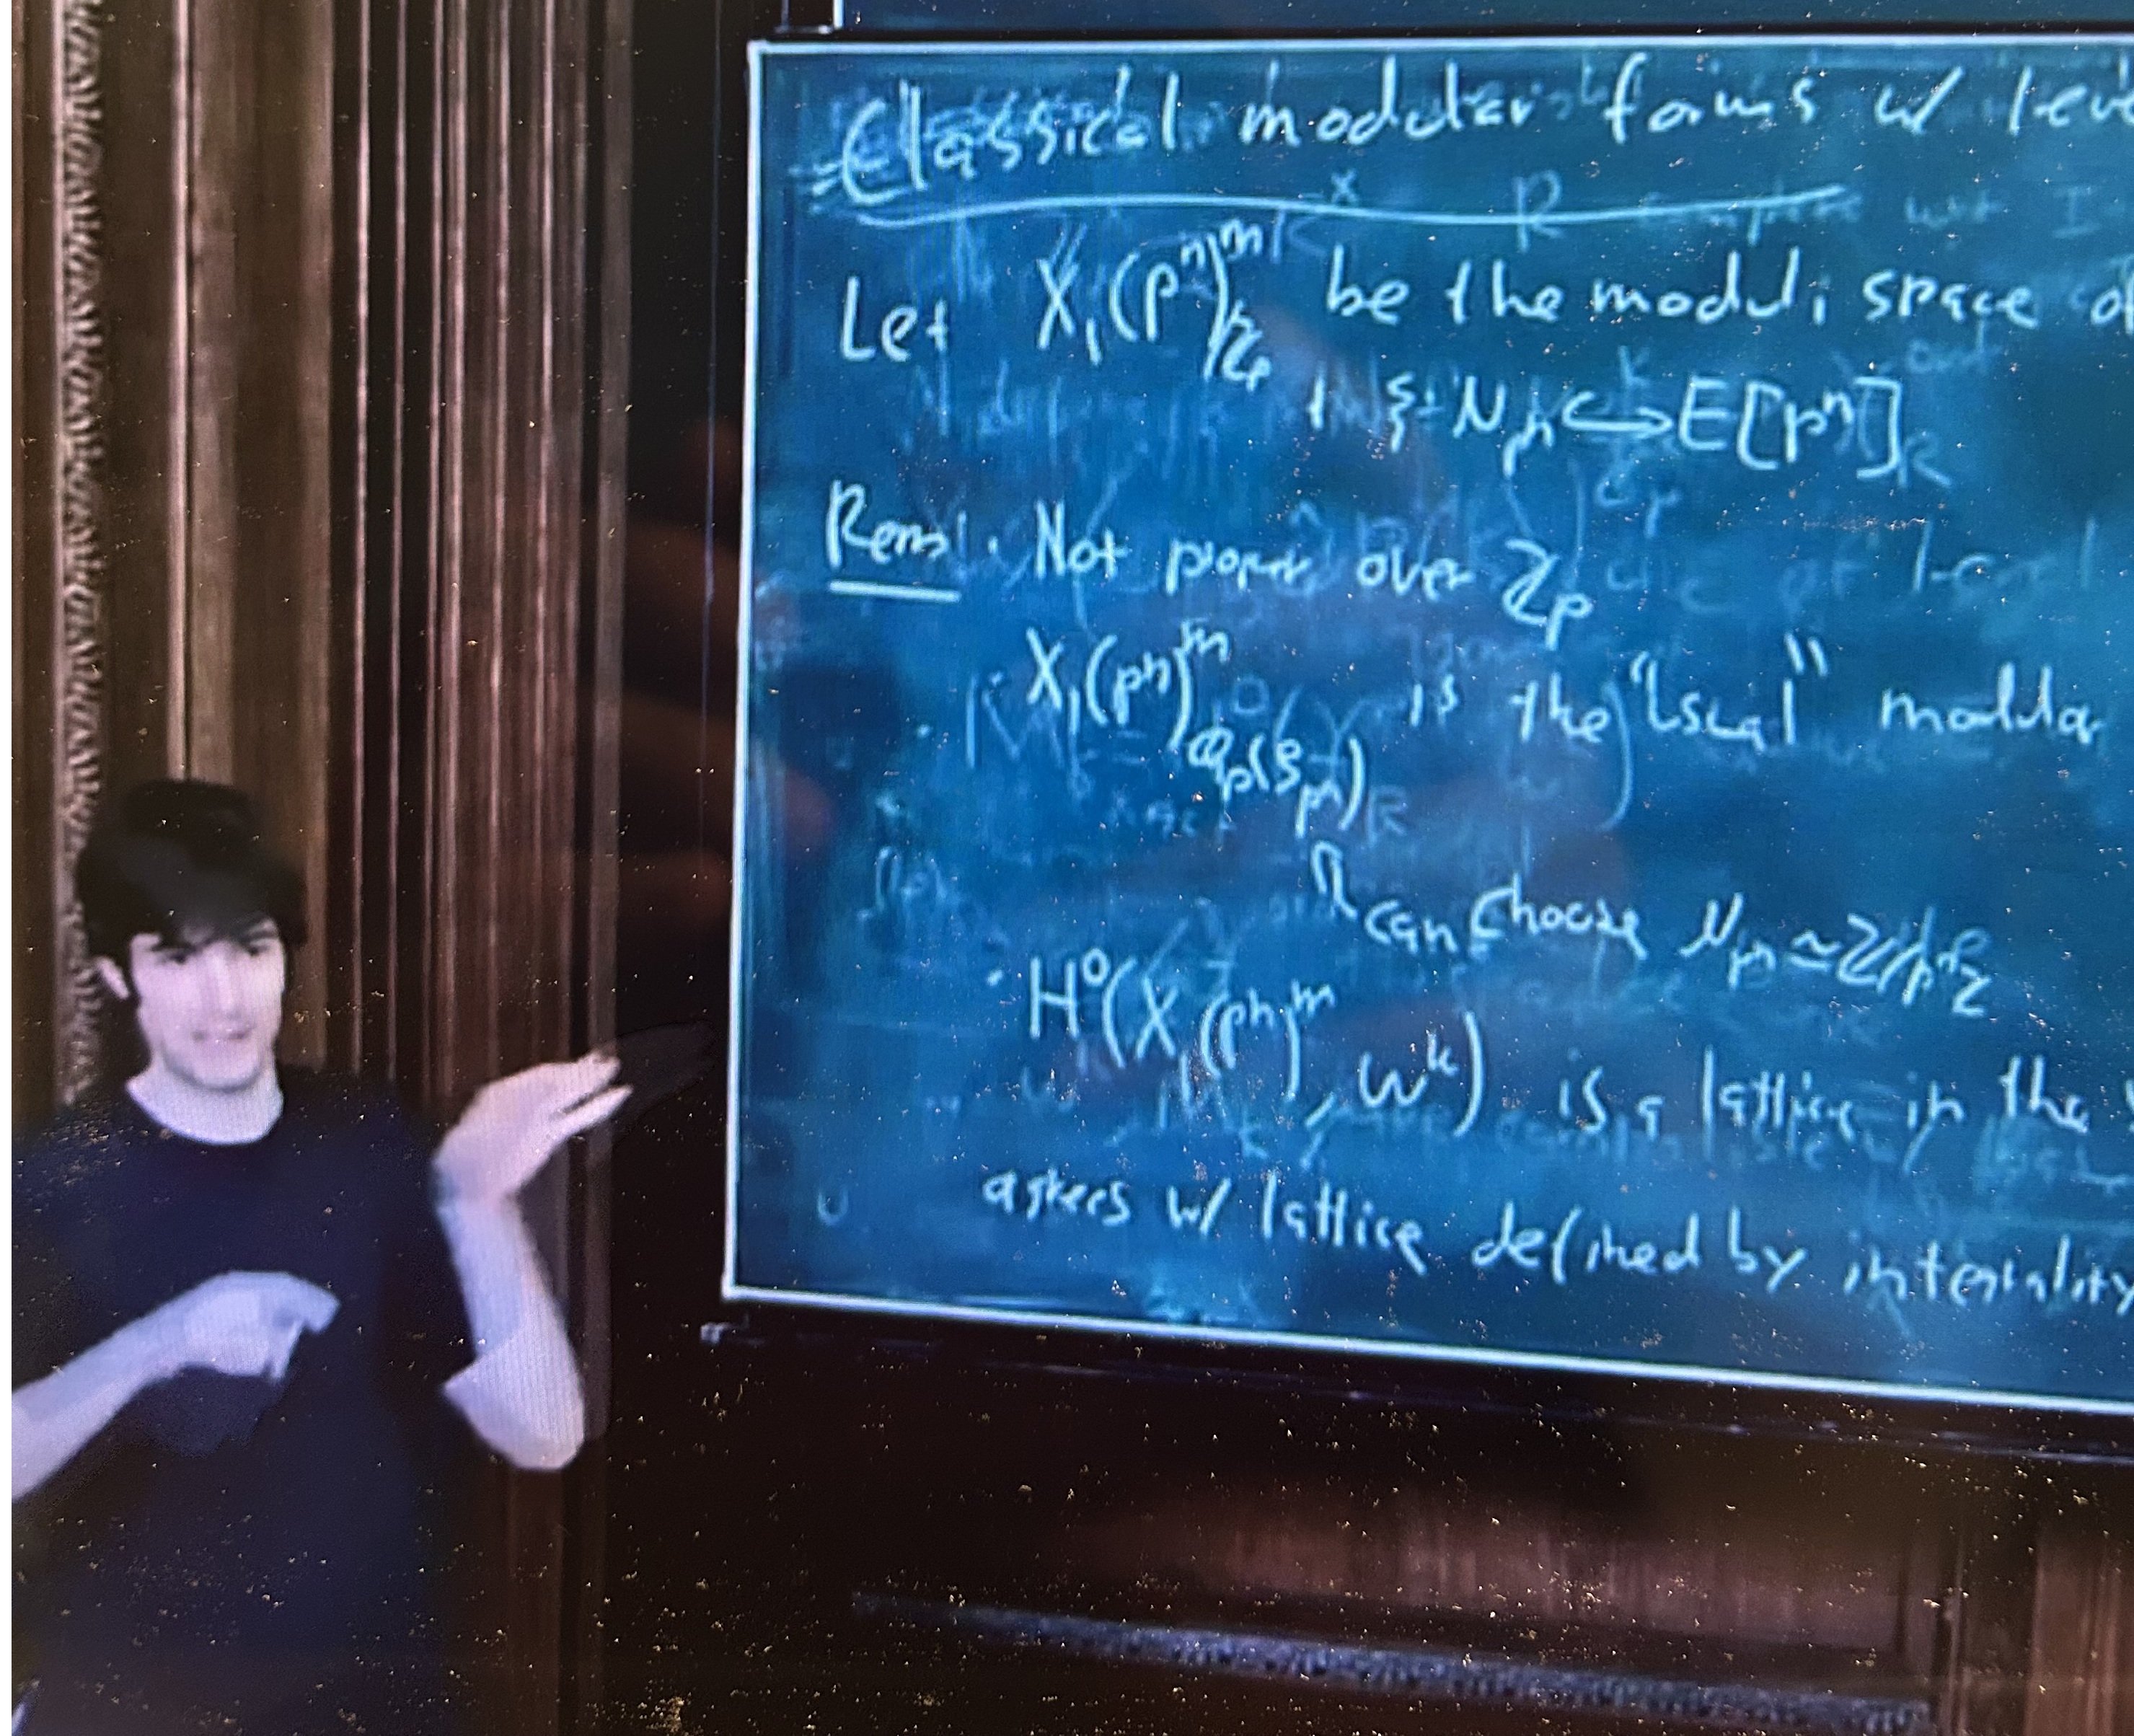 Classical modular forms w/ leve
Let X₁(pⁿ)^m_{ℤ_p} be the moduli space of
+ ξ: μ_{pⁿ} ↪ E[pⁿ]
Rem: · Not proper over ℤ_p
· X₁(pⁿ)^m_{ℚ_p(ζ_{pⁿ})} is the "usual" modular
can choose μ_{pⁿ} ≃ ℤ/pⁿℤ
· H⁰(X₁(pⁿ)^m, ω^k) is a lattice in the
agrees w/ lattice defined by integrality